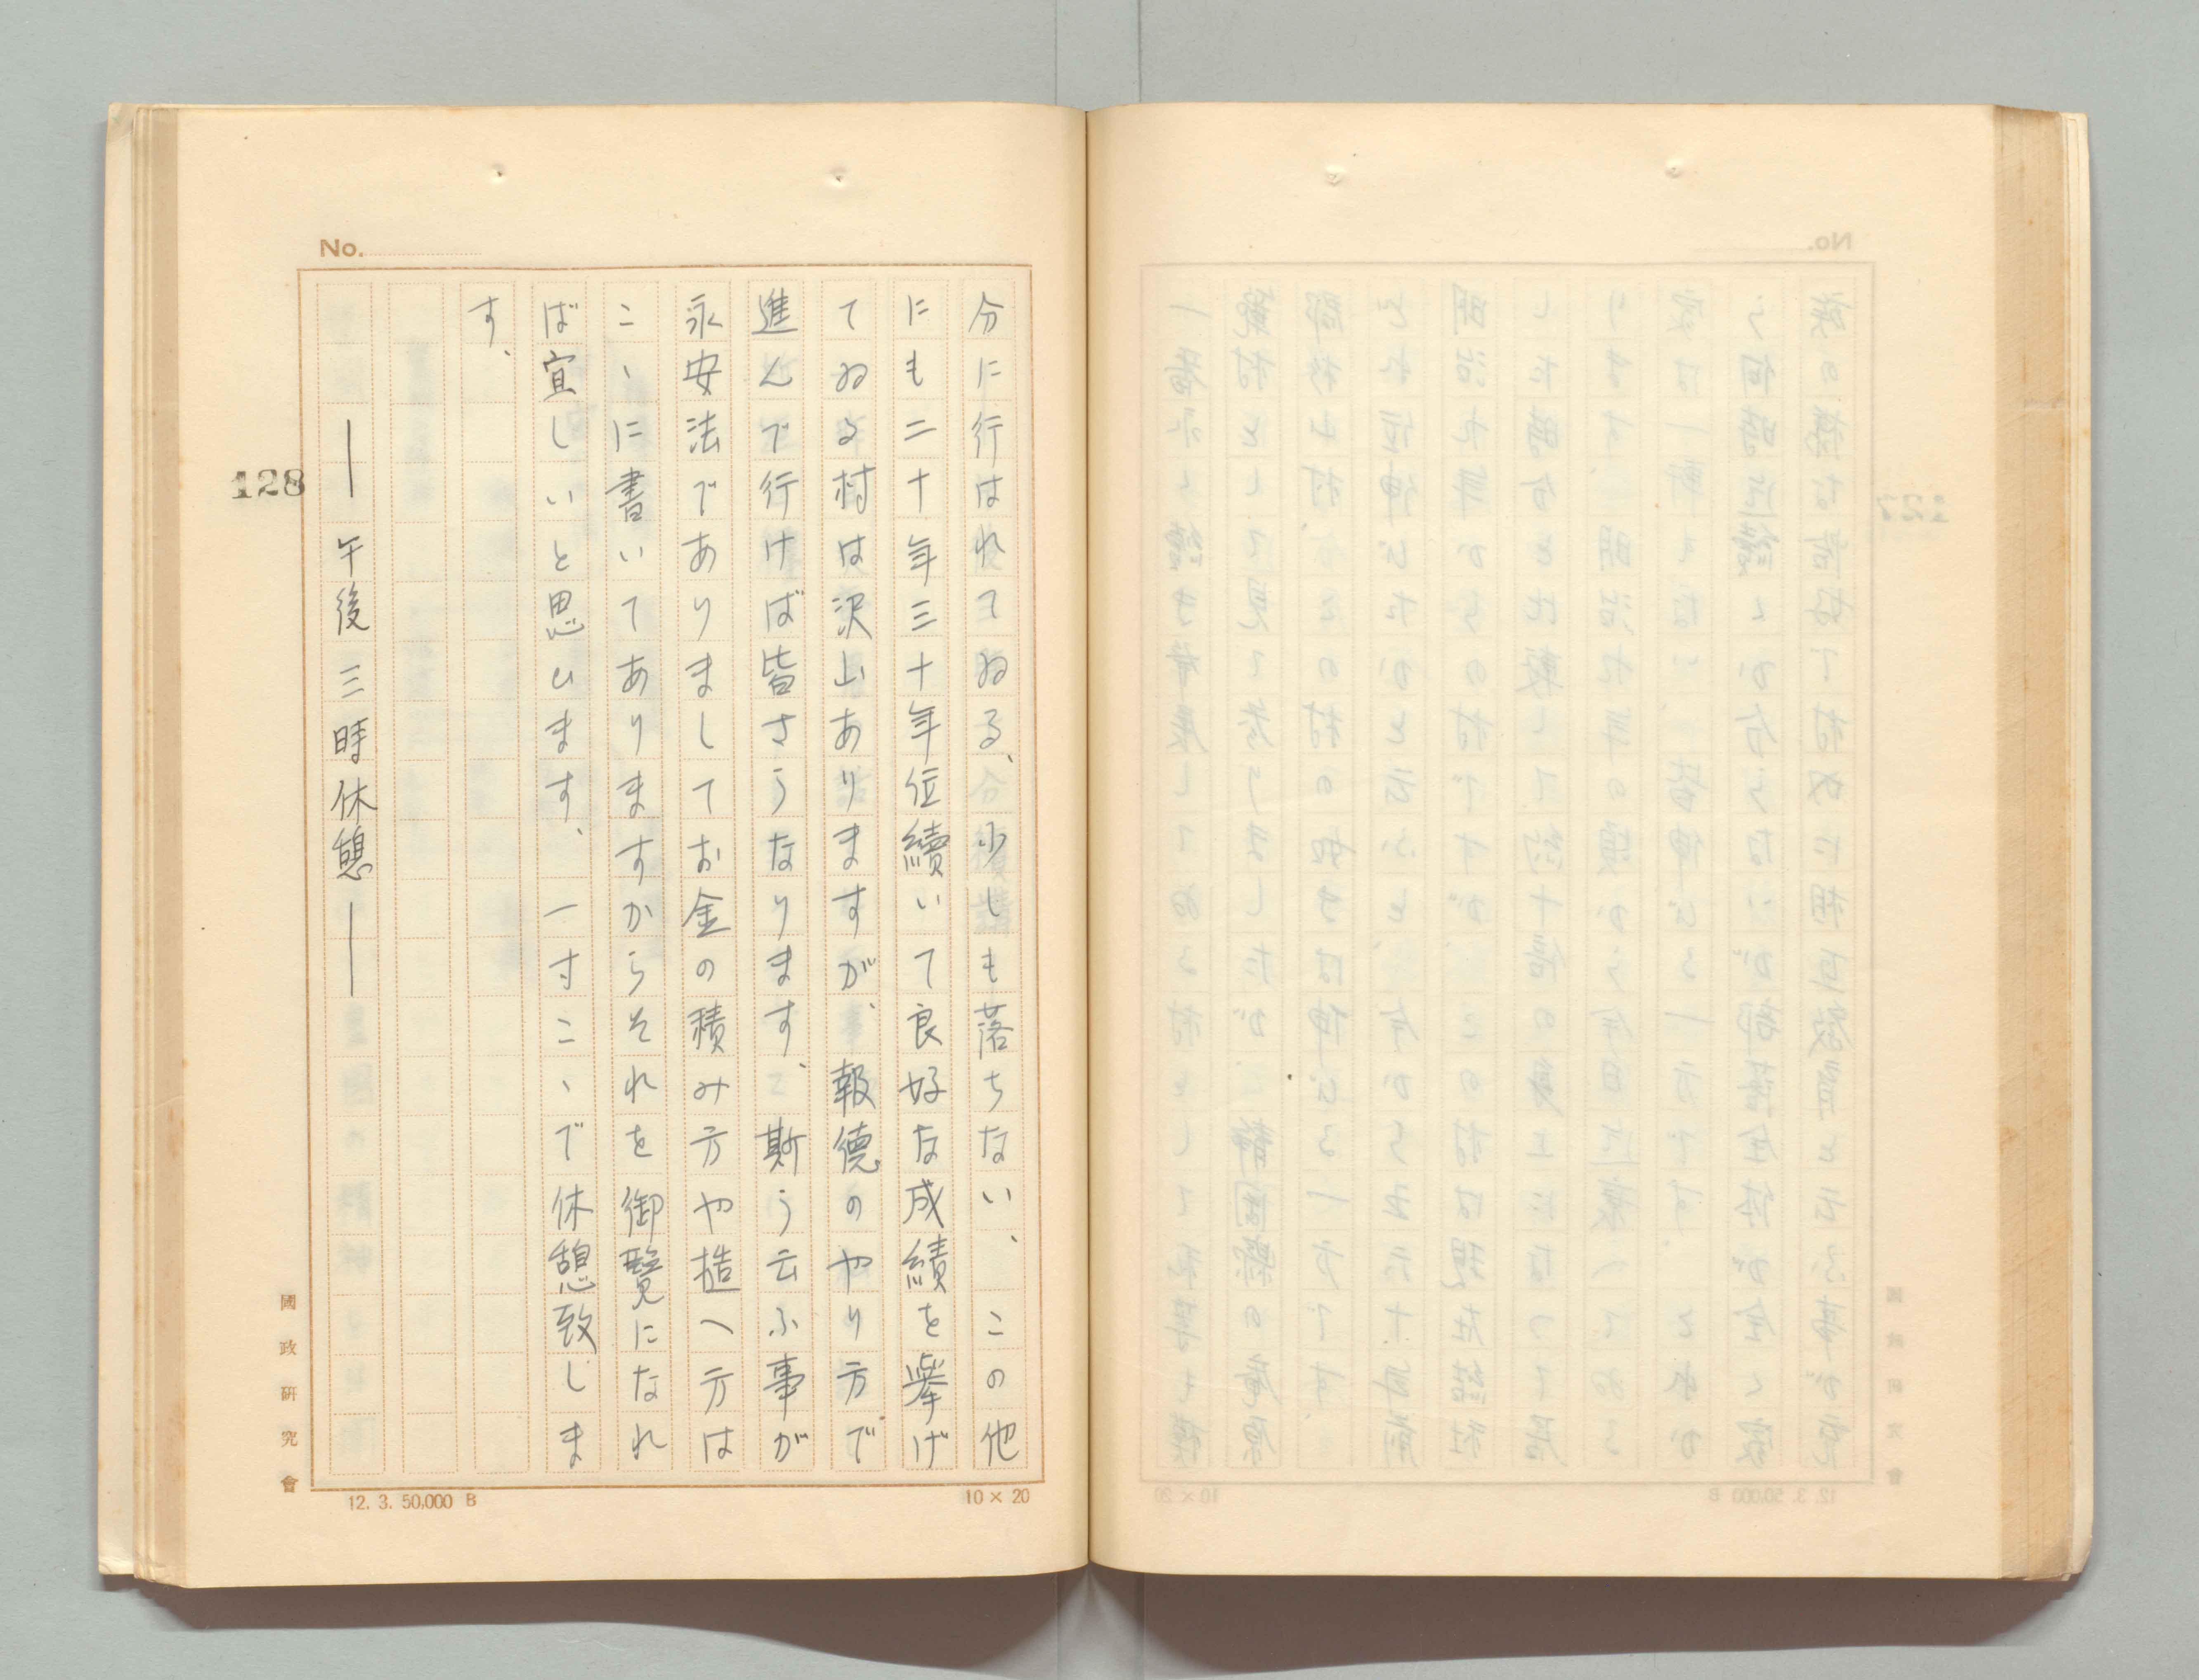 No.
分に行はれてゐる、少しも落ちない、この他
にも二十年三十年位續いて良好な成績を挙げ
てゐる村は沢山ありますが、報德のやり方で
進んで行けば皆さうなります、斯う云ふ事が
永安法でありましてお金の積み方や揩へ方は
こゝに書いてありますからそれを御覽になれ
ば宜しいと思ひます、一寸こゝで休憩致しま
す、
―午後三時休憩―
128
國政研究會
12. 3. 50,000 B
10×20